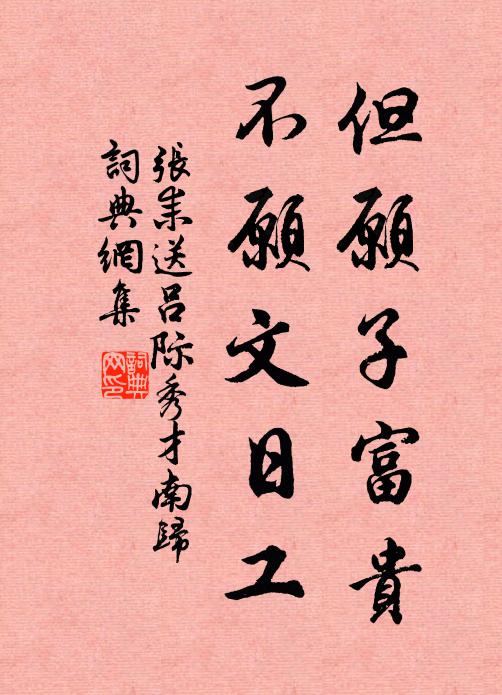 但願子富貴
不願文日工
張耒送呂際秀才南歸
詞典網集
詞典
网印